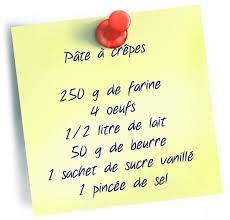 Pâte à crêpes
250 g de farine
4 oeufs
1/2 litre de lait
50 g de beurre
1 sachet de sucre vanillé
1 pincée de sel